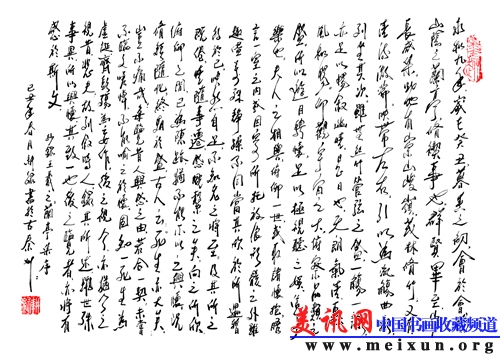 永和九年歲在癸丑暮春之初會於會
山陰之蘭亭脩禊事也群賢畢至少
長咸集此地有崇山峻嶺茂林脩竹又有
清流激湍映帶左右引以為流觴曲水
列坐其次雖無絲竹管弦之盛一觴一詠
亦足以暢敘幽情是日也天朗氣清惠
風和暢仰觀宇宙之大俯察品類之
盛所以遊目騁懷足以極視聽之娛信可
樂也夫人之相與俯仰一世或取諸懷抱悟
言一室之內或因寄所託放浪形骸之外雖
趣舍萬殊靜躁不同當其欣於所遇暫
得於己快然自足不知老之將至及其所
之既倦情隨事遷感慨係之矣向之所欣
俯仰之間已為陳跡猶不能不以之興懷況
脩短隨化終期於盡古人云死生亦大矣
豈不痛哉每覽昔人興感之由若合一契未嘗
不臨文嗟悼不能喻之於懷固知一死生為
虛誕齊彭殤為妄作後之視今亦猶今之
視昔悲夫故列敘時人錄其所述雖世殊
事異所以興懷其致一也後之覽者亦將有
感於斯文 抄錄王羲之蘭亭集序
己丑年春月書於古秦州
美讯网 中国书画收藏频道
www.meixun.org